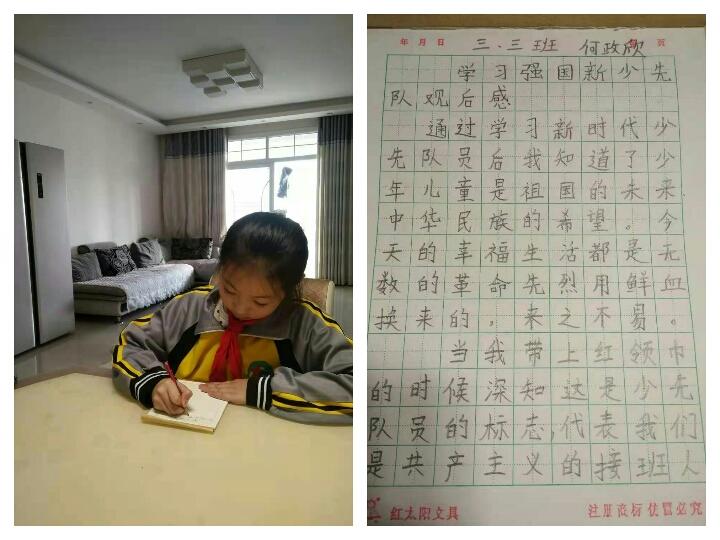 年 月 日 三.三班 何政欣 页
学习强国新少先
队观后感
通过学习新时代少
先队员后我知道了少
年儿童是祖国的未来
中华民族的希望。今
天的幸福生活都是无
数的革命先烈用鲜血
换来的，来之不易。
当我带上红领巾
的时候深知这是少先
队员的标志，代表我们
是共产主义的接班人
红太阳文具 注册商标 仿冒必究